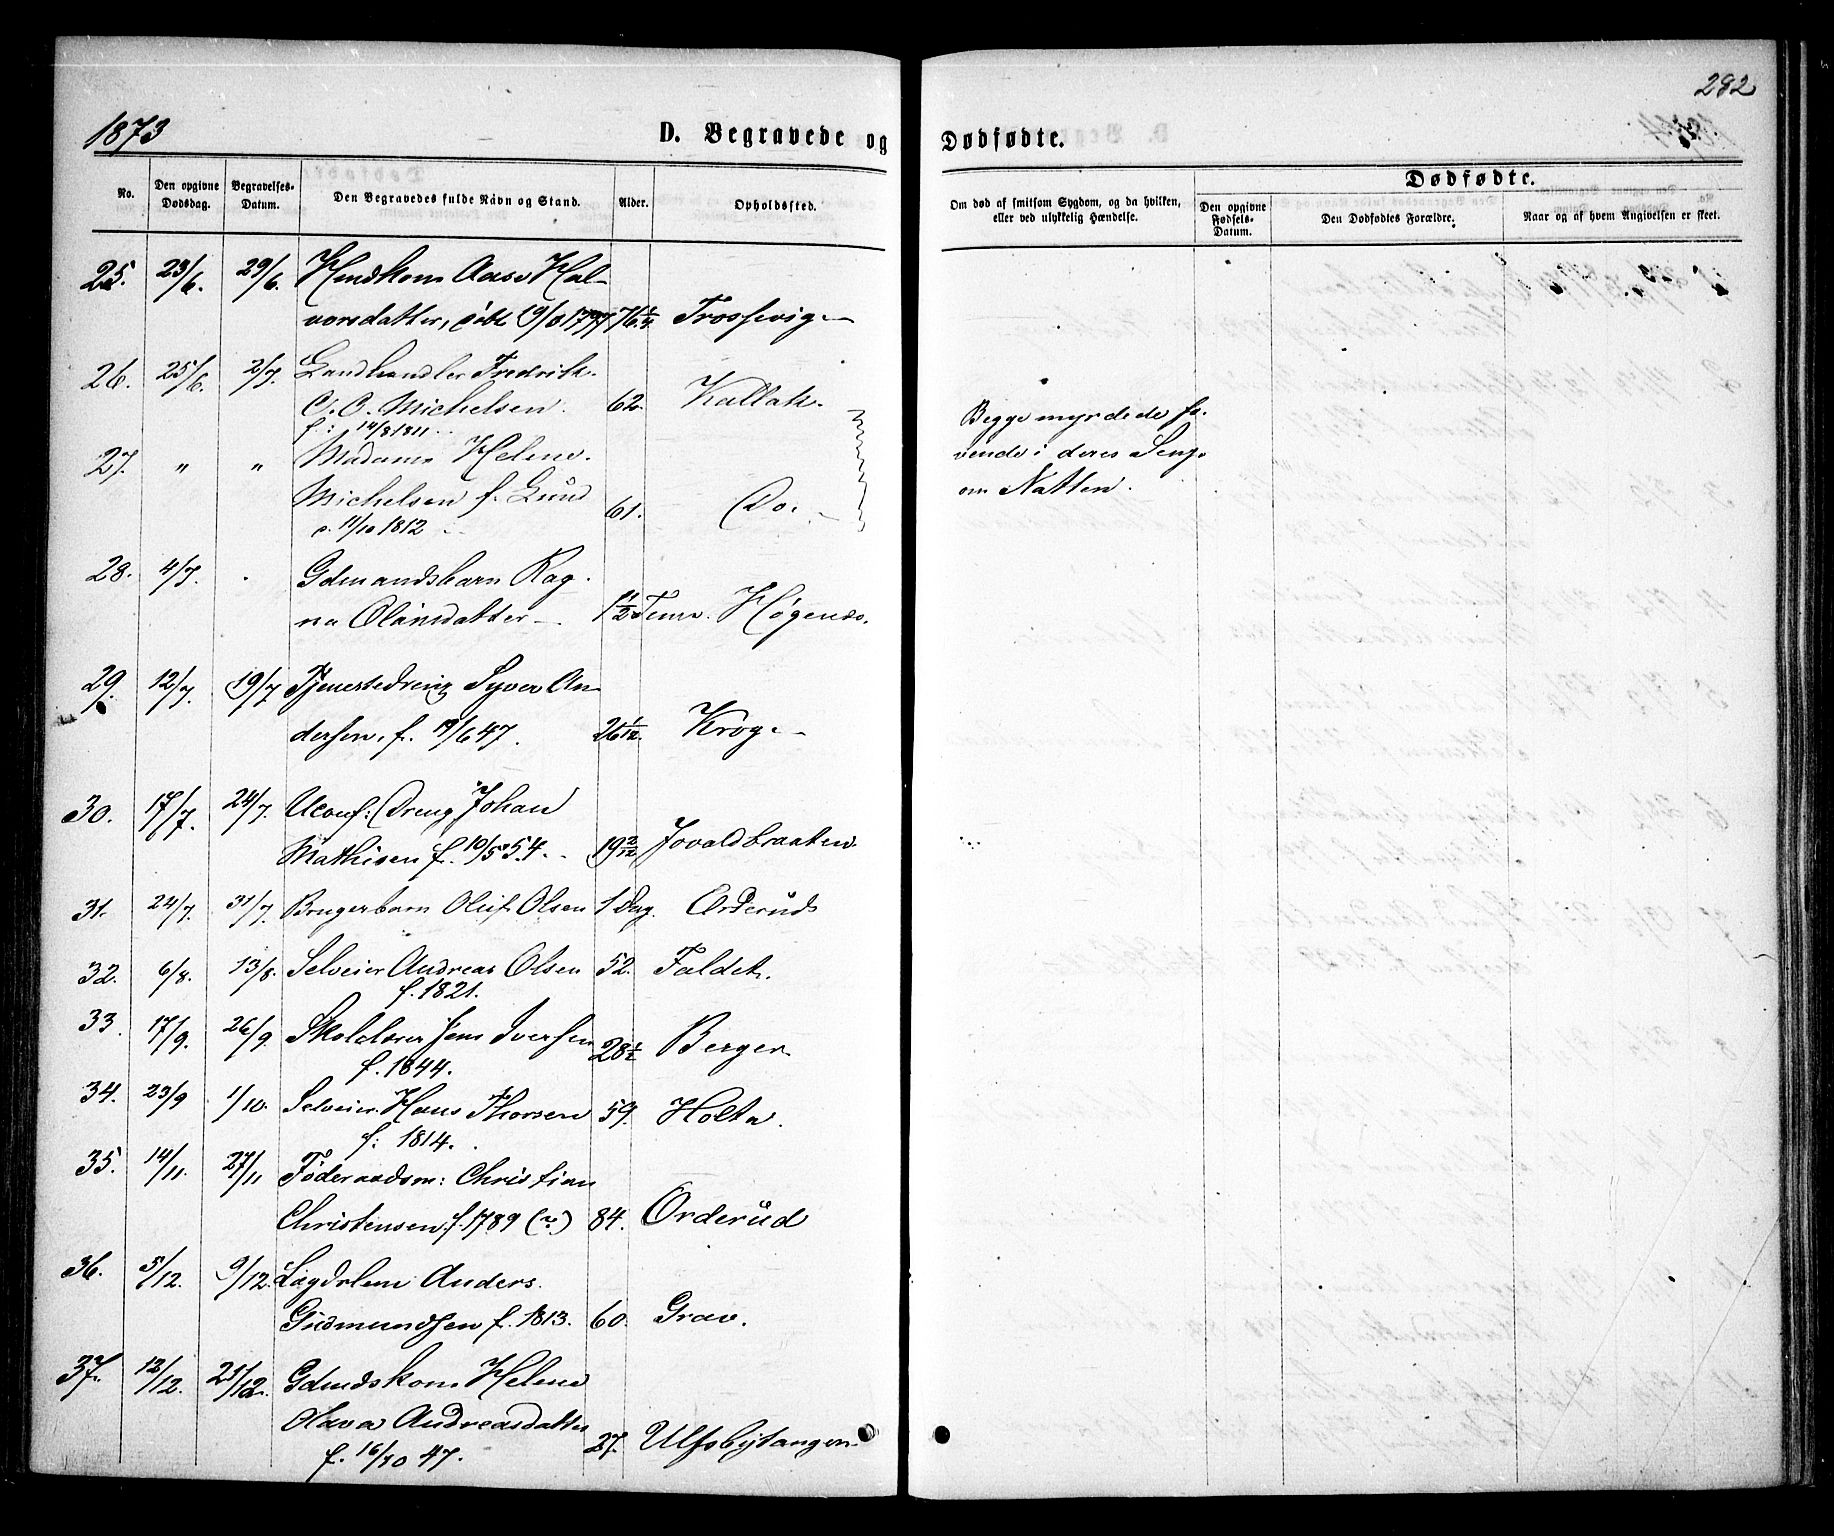 282
1873
D. Begravede og
Dødfødte.
No.
Den opgivne Dødsdag.
Begravelses-Datum.
Den Begravedes fulde Navn og Stand.
Alder.
Opholdssted.
Om død af smitsom Sygdom, og da hvilken, eller ved ulykkelig Hændelse.
Dødfødte.
Den opgivne Fødsels-Datum.
Den Dødfødtes Forældre.
Naar og af hvem Angivelsen er skeet.
25. 23/6. 29/6. Hmdskone Aase Hal-
vorsdatter, født 19/3 1797 76 1/4 Trosvig
26. 25/6. 2/7. Landhandler Fredrik
C. O. Michelsen. 62. Kallak.
f: 14/8 1811
27. " " Madame Helene
Michelsen f. Lund 61. Do.
f. 11/10 1812
Begge myrdede so-
vende i deres Seng
om Natten.
28. 4/7. Gdmandsbarn Rag-
na Olausdatter 1 11/12 Høgenæs.
29. 12/7. 19/7 Tjenestedreng Syver An-
dersen, f. 19/6 47. 26 1/12. Krog
30. 17/7. 24/7. Uconf: Dreng Johan
Mathisen f. 10/5 54. 19 2/12 Jovaldbraaten
31. 24/7. 31/7. Brugerbarn Oluf Olsen 1 Dag. Orderud
32. 6/8. 13/8. Selveier Andreas Olsen 52. Faldet.
f. 1821.
33. 17/9. 26/9. Skolelærer Jens Iversen 28 1/2 Berger
f. 1844.
34. 23/9 1/10. Selveier Hans Thorsen 59. Holta.
f: 1814.
35. 14/11. 27/11 Føderaadsm: Christian
Christensen f. 1789 (?) 84. Orderud
36. 5/12. 9/12. Lægdslem Anders
Gudmundsen f. 1813. 60. Grav.
37. 12/12. 21/12. Gdmdskone Helene
Olava Andreasdatter 27. Ulfsbytangen
f. 16/10 47.